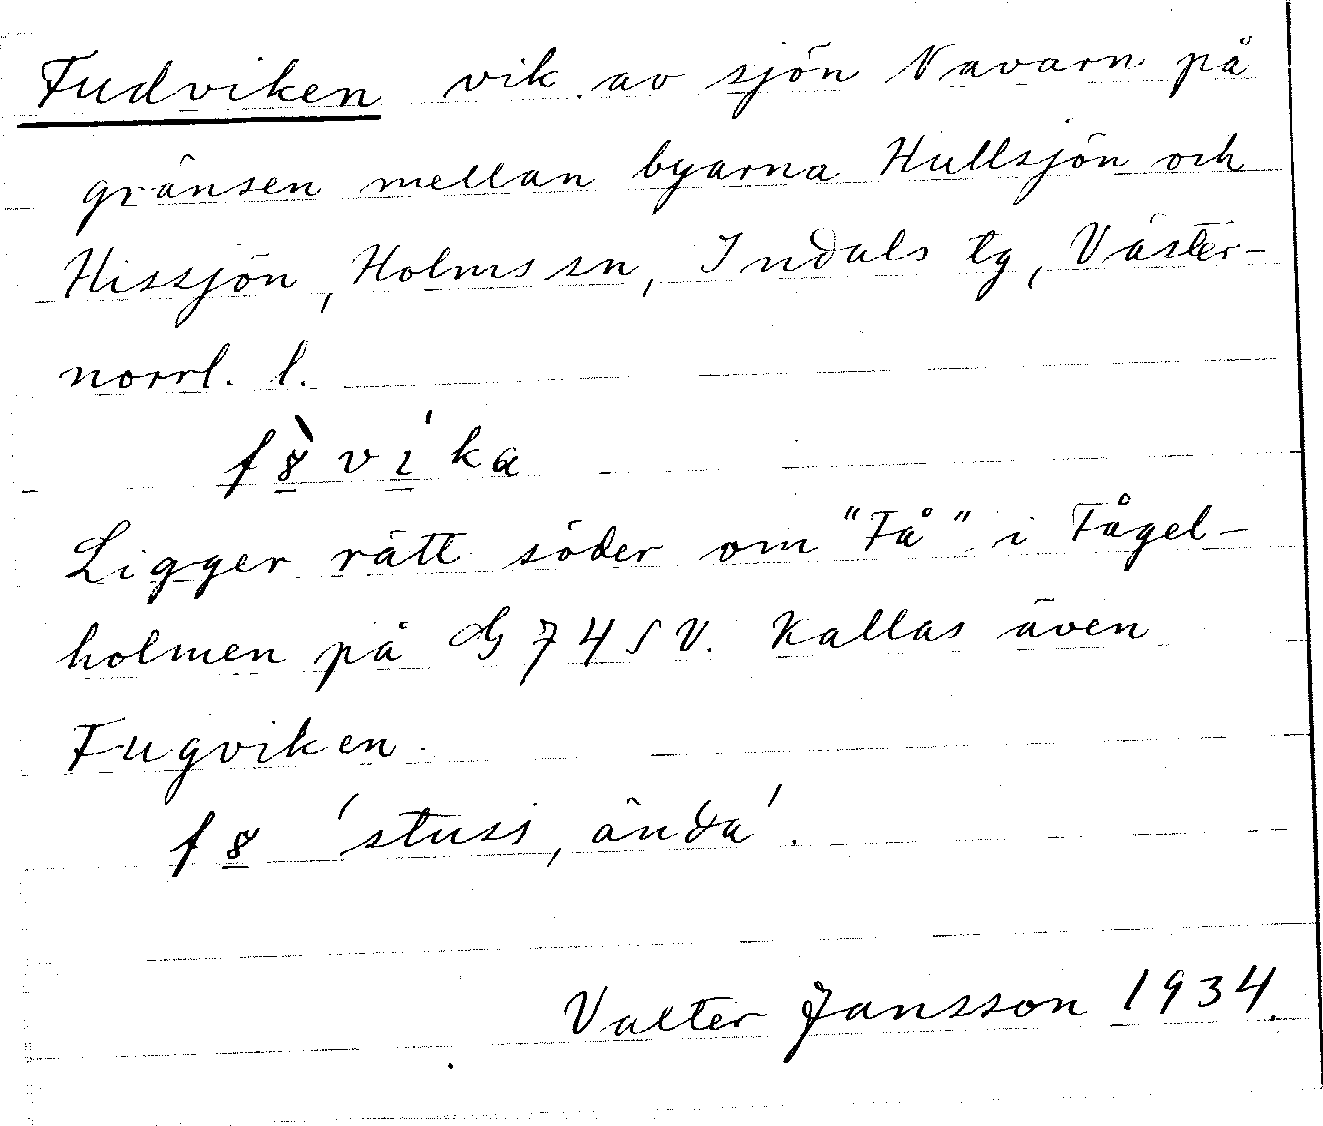 Fudviken vik av sjön Navarn på
gränsen mellan byarna Hullsjön och
Hissjön, Holms sn, Indals tg, Väster-
norrl. l.
f8̱̀ví̱ka
Ligger rätt söder om "Få" i Fågel-
holmen på G74SV. Kallas även
Fugviken.
f8̱ 'stuss, ända'.
Valter Jansson 1934.